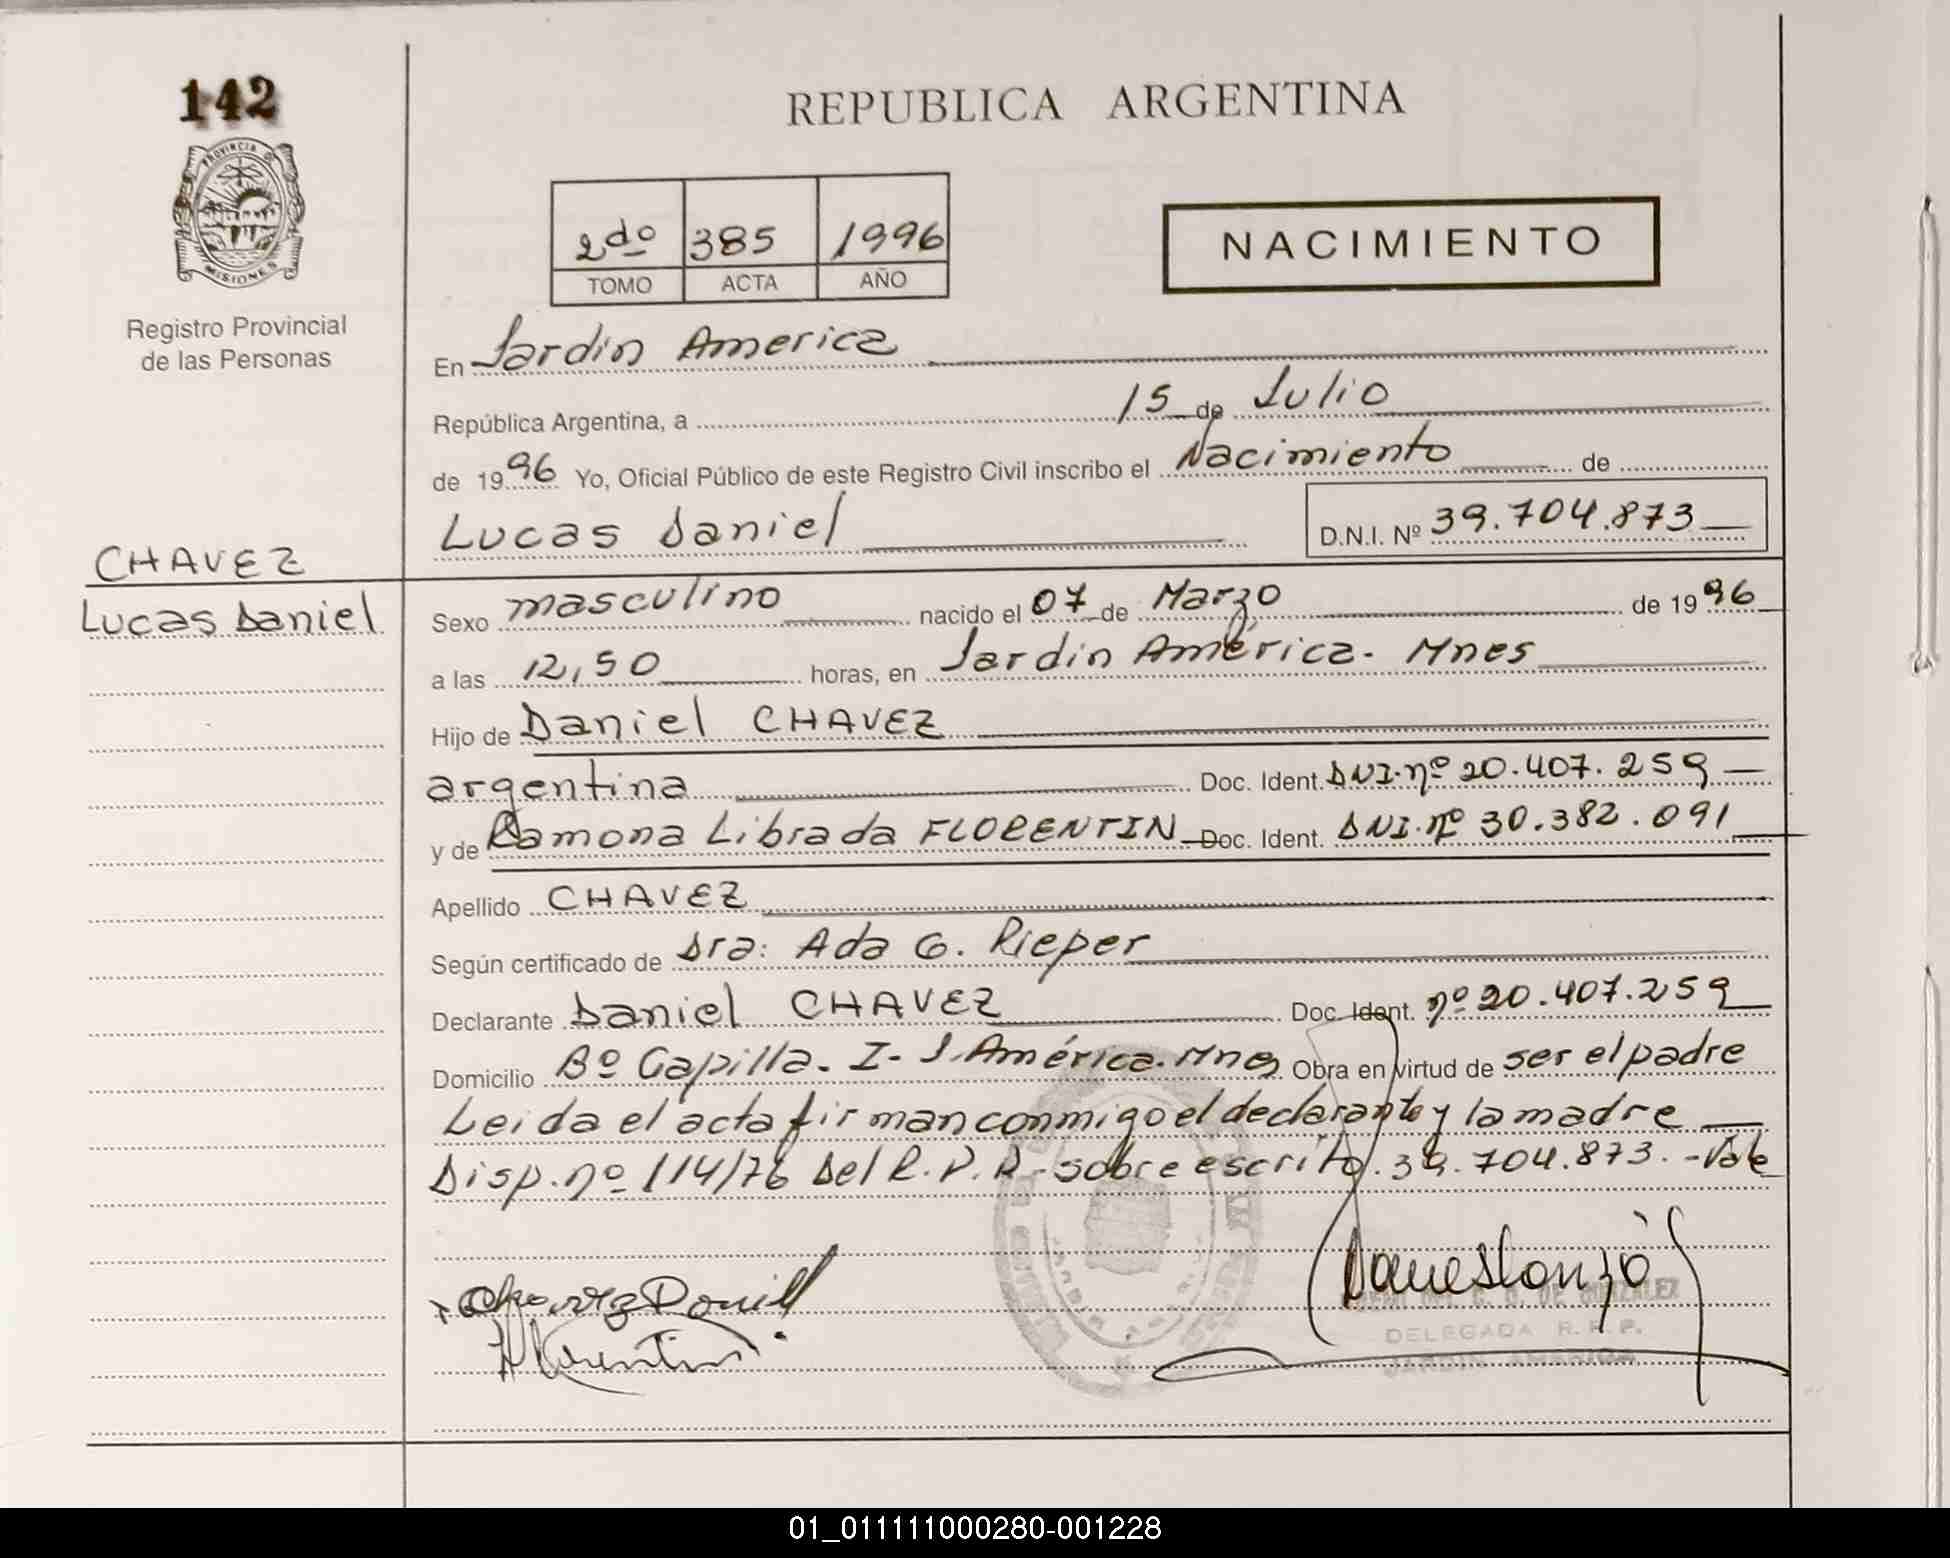 142
PROVINCIA DE
MISIONES
Registro Provincial
de las Personas
REPUBLICA ARGENTINA
2do 385 1996
TOMO ACTA AÑO
NACIMIENTO
En Jardin America
República Argentina, a 15 de Julio
de 1996 Yo, Oficial Público de este Registro Civil inscribo el Nacimiento de
Lucas Daniel D.N.I. Nº 39.704.873
CHAVEZ
Lucas Daniel
Sexo masculino nacido el 07 de Marzo de 1996
a las 12,50 horas, en Jardin América. Mnes
Hijo de Daniel CHAVEZ
argentina Doc. Ident. DNI. nº 20.407.259
y de Ramona Librada FLORENTIN Doc. Ident. DNI. nº 30.382.091
Apellido CHAVEZ
Según certificado de Dra: Ada G. Rieper
Declarante Daniel CHAVEZ Doc. Ident. nº 20.407.259
Domicilio Bº Capilla. I- J. América. Mnes Obra en virtud de ser el padre
Leida el acta firman conmigo el declarante y la madre
Disp. nº 114/76 del R.P.P. - sobre escrito. 39.704.873. - Vale
Chavez Daniel
Florentin
DE GONZALEZ
DELEGADA R. P. P.
JARDIN AMERICA
01_011111000280-001228